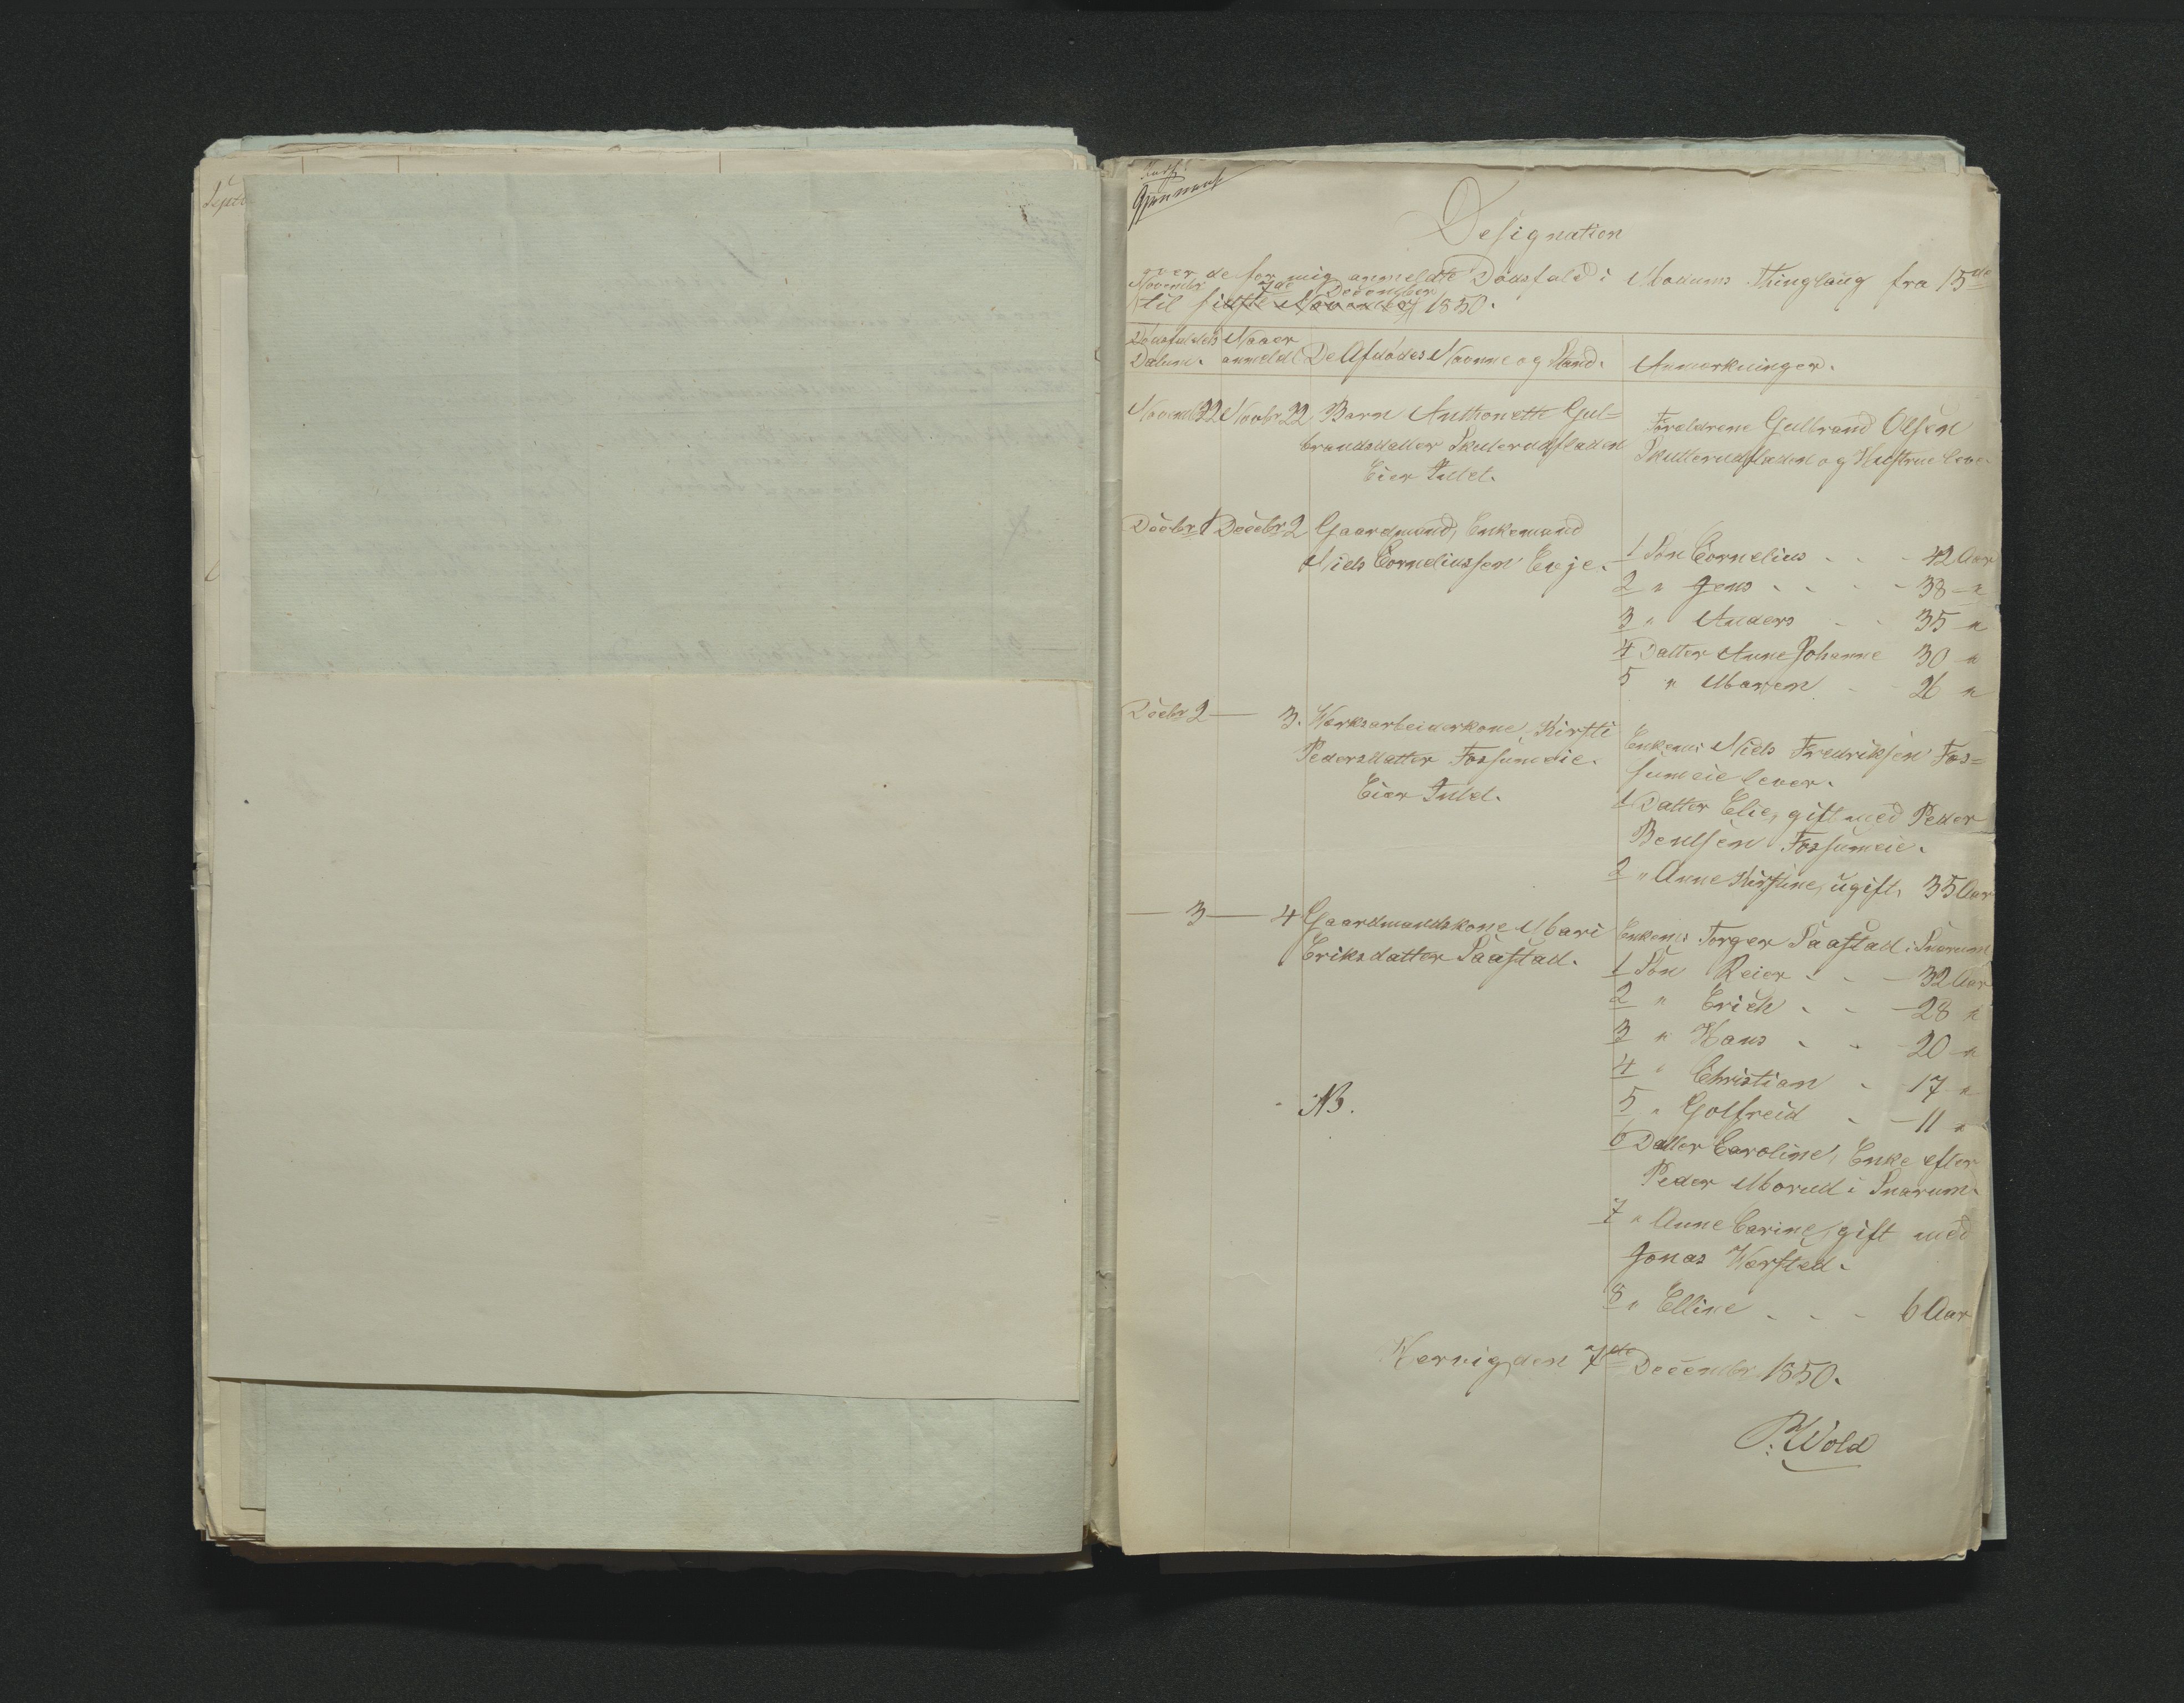 Gjennems
Designation
over de for mig anmeldte Dødsfald i Modums Thinglaug fra 15de
November til sidste November 7de December 1850.
Dødsfaldets Datum.
Naar anmeldt
De Afdødes Navne og Stand.
Anmærkninger.
Novemb 22 Novbr 22 Barn Anthonette Gul=
brandsdatter Skuterudfladen
Eier Intet.
Foreldrene Gulbrand Olsen
Skutterudfladen og Hustrue lever
Decbr 1 Decebr 2 Gaardmand, Enkemand
Niels Corneliussen Evje.
1 Søn Cornelius - - 42 Aar
2 " Jens - - - 38 "
3 " Anders - - 35 "
4 Datter Anne Johanne 30 "
5 " Maren - 26 "
Decbr 2 — 3. Værksarbeiderkone Kirsti
Pedersdatter Fossumeie.
Eier Intet.
Enkem: Niels Fredriksen Fos=
sumeie lever.
1 Datter Elie, gift med Peder
Bentsen Fossumeie.
2 " Anne Kirstine, ugift, 35 Aar
— 3 — 4 Gaardmandskone Mari
Eriksdatter Saastad.
Enkem: Torger Saastad i Snarum
1 Søn Reier - - 32 Aar
2 " Erich - - 28 "
3 " Hans - - 20 "
4 " Christian - 17 "
NB.
5 " Golfreid - 11 "
6 Datter Caroline, Enke efter
Peder Morud i Snarum.
7 " Anne Carine, gift med
Jonas Værsted.
8 " Elline - - - 6 Aar
Kervig den 7de December 1850.
P. Wold